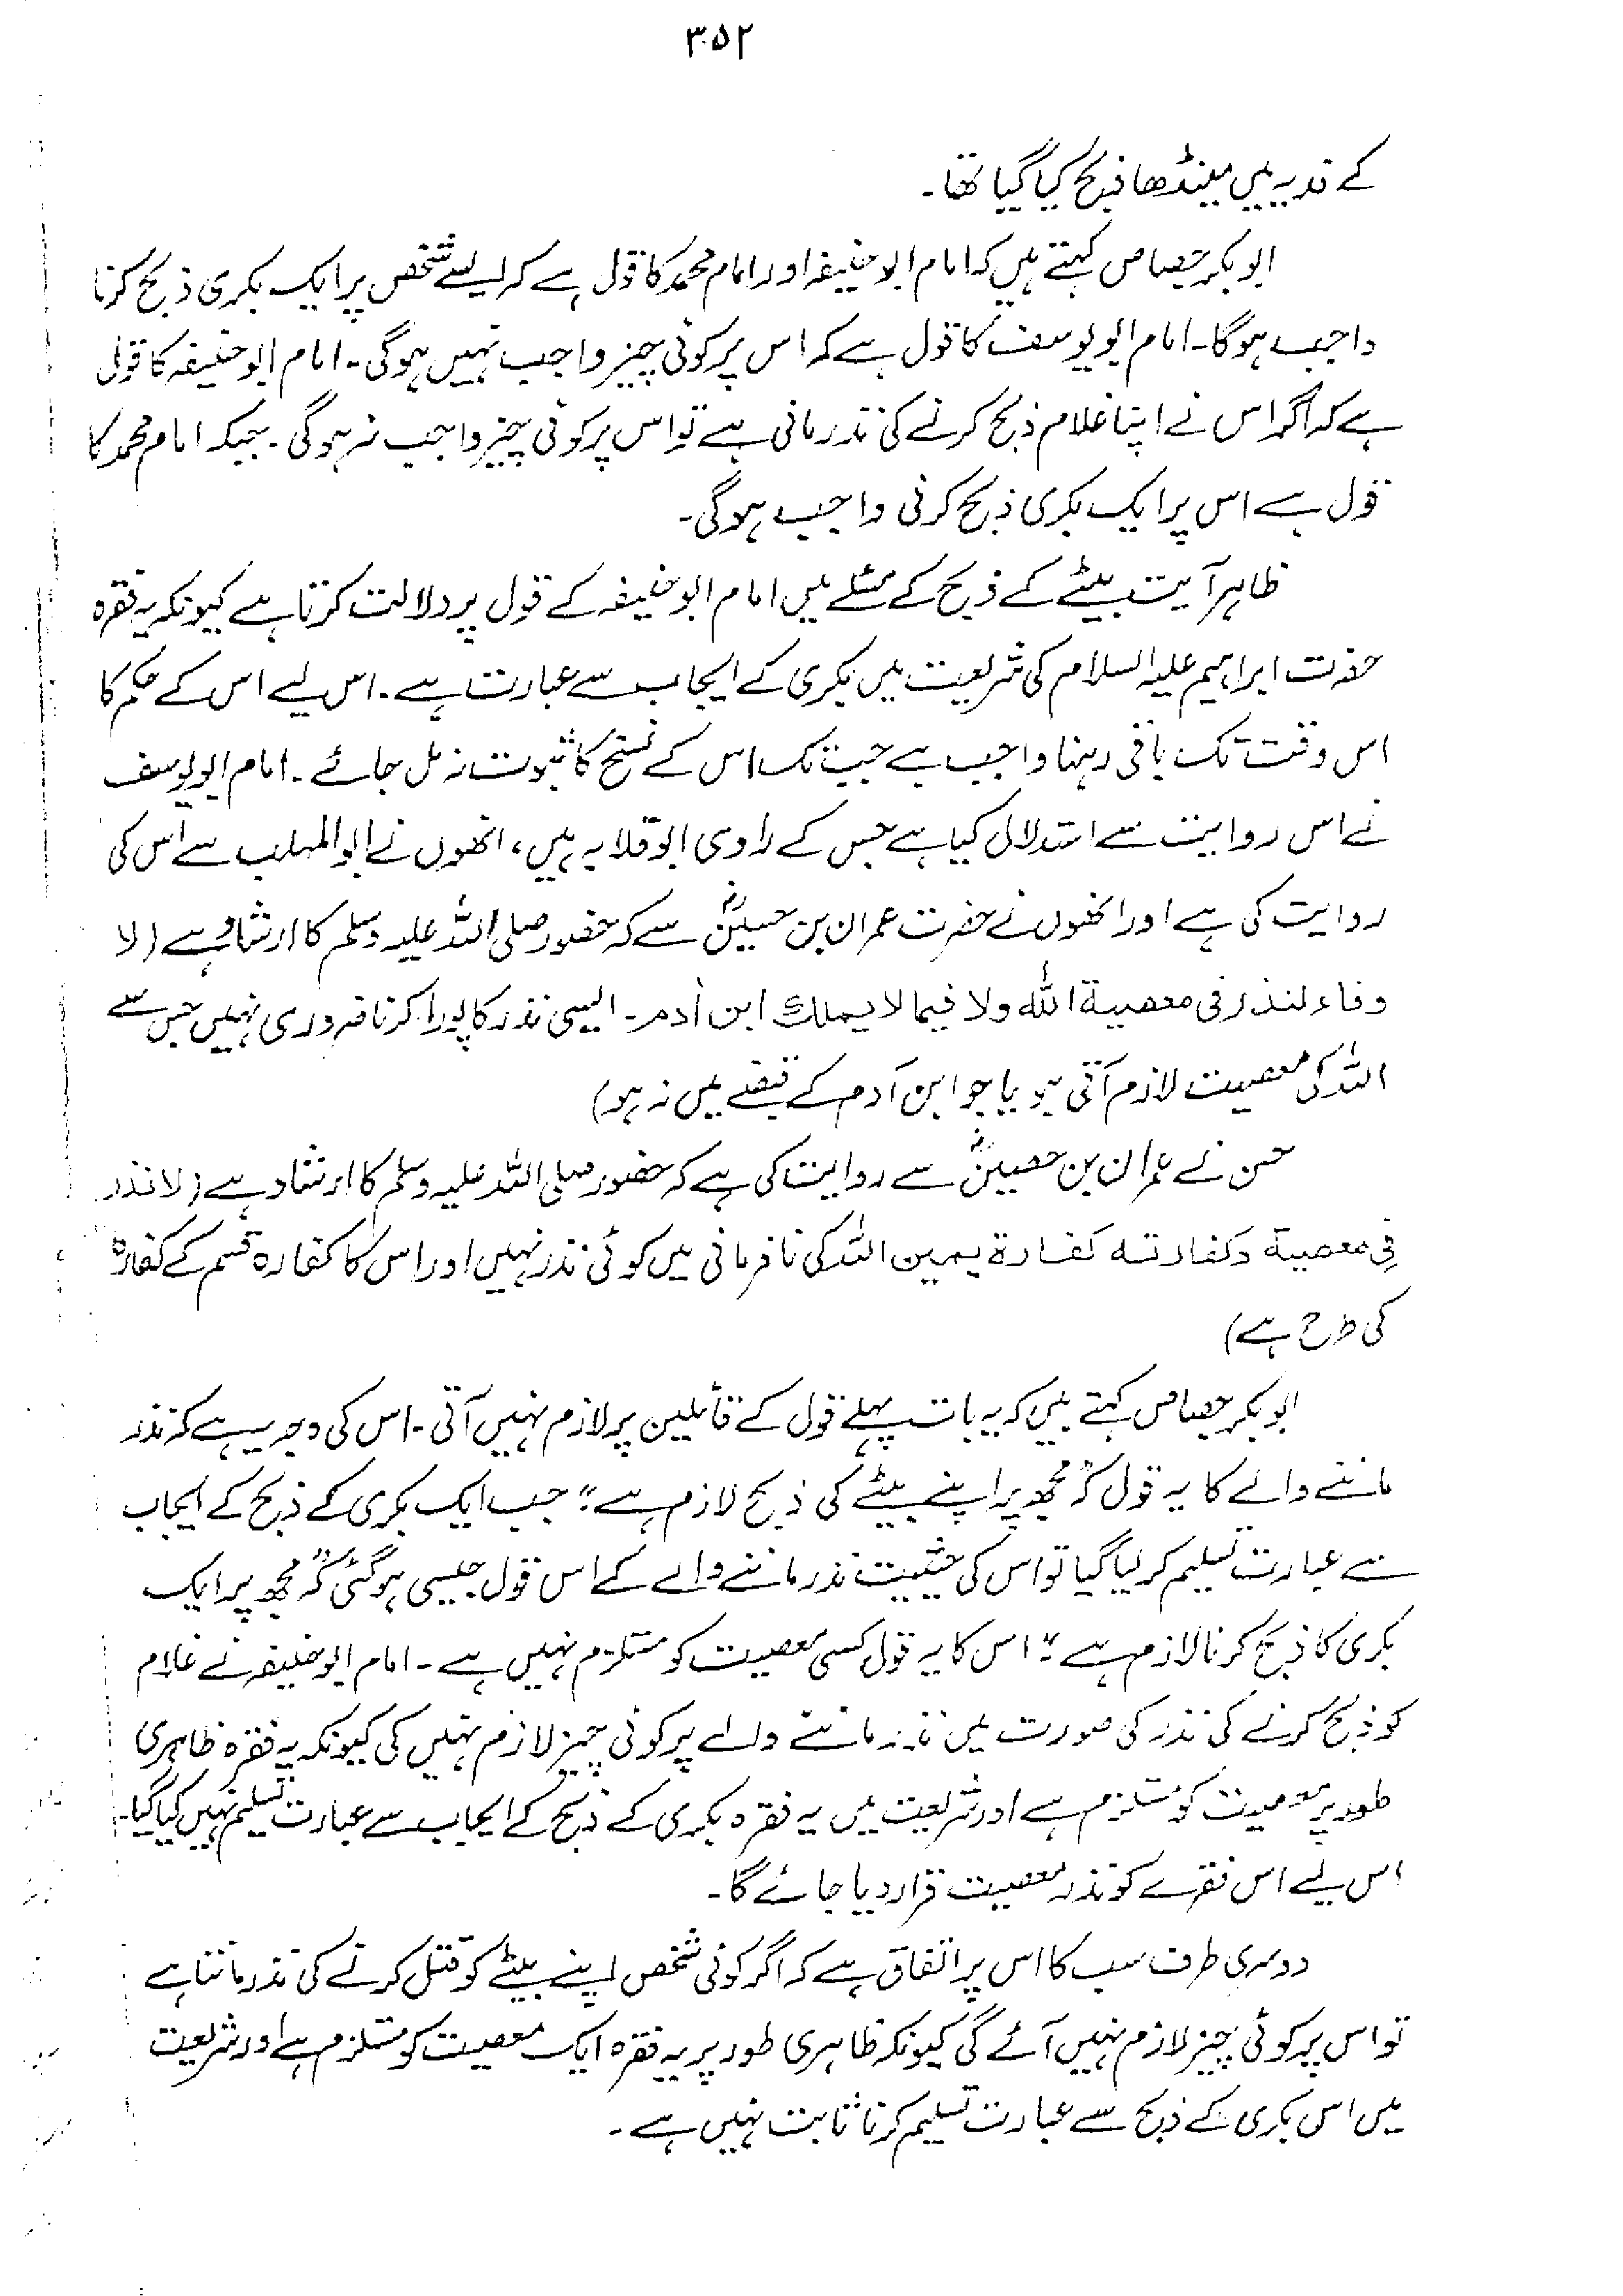 ۳۵۲
کے فدیہ میں مینڈھا ذبح کیا گیا تھا۔
ابوبکر جصاص کہتے ہیں کہ امام ابو حنیفہ اور امام محمد کا قول ہے کہ ایسے شخص پر ایک بکری ذبح کرنا
واجب ہوگا۔ امام ابو یوسف کا قول ہے کہ اس پر کوئی چیز واجب نہیں ہوگی۔ امام ابو حنیفہ کا قول
ہے کہ اگر اس نے اپنا غلام ذبح کرنے کی نذر مانی ہے تو اس پر کوئی چیز واجب نہ ہوگی۔ جبکہ امام محمد کا
قول ہے اس پر ایک بکری ذبح کرنی واجب ہوگی۔
ظاہر آیت بیٹے کے ذبح کے مسئلے میں امام ابو حنیفہ کے قول پر دلالت کرتا ہے کیونکہ یہ فقرہ
حضرت ابراہیم علیہ السلام کی شریعت میں بکری کے ایجاب سے عبارت ہے۔ اس لیے اس کے حکم کا
اس وقت تک باقی رہنا واجب ہے جب تک اس کے نسخ کا ثبوت نہ مل جائے۔ امام ابو یوسف
نے اس روایت سے استدلال کیا ہے جس کے راوی ابو قلابہ ہیں، انھوں نے ابو المہلب سے اس کی
روایت کی ہے اور انھوں نے حضرت عمران بن حصینؓ سے کہ حضور صلی اللہ علیہ وسلم کا ارشاد ہے (لا
وفاء لنذر فی معصیۃ اللہ ولا فیما لا یملک ابن اٰدم۔ ایسی نذر کا پورا کرنا ضروری نہیں جس سے
اللہ کی معصیت لازم آتی ہو یا جو ابن آدم کے قبضے میں نہ ہو)
حسن نے عمران بن حصینؓ سے روایت کی ہے کہ حضور صلی اللہ علیہ وسلم کا ارشاد ہے (لا نذر
فِی معصیۃ وکفارتہ کفارۃ یمین اللہ کی نافرمانی میں کوئی نذر نہیں اور اس کا کفارہ قسم کے کفارہ
کی طرح ہے)
ابوبکر جصاص کہتے ہیں کہ یہ بات پہلے قول کے قائلین پر لازم نہیں آتی۔ اس کی وجہ یہ ہے کہ نذر
ماننے والے کا یہ قول کہ "مجھ پر اپنے بیٹے کی ذبح لازم ہے" جب ایک بکری کے ذبح کے ایجاب
سے عبارت تسلیم کر لیا گیا تو اس کی حیثیت نذر ماننے والے کے اس قول جیسی ہوگئی کہ "مجھ پر ایک
بکری کا ذبح کرنا لازم ہے" اس کا یہ قول کسی معصیت کو مستلزم نہیں ہے۔ امام ابو حنیفہ نے غلام
کو ذبح کرنے کی نذر کی صورت میں نذر ماننے والے پر کوئی چیز لازم نہیں کی کیونکہ یہ فقرہ ظاہری
طور پر معصیت کو مستلزم ہے اور شریعت میں یہ فقرہ بکری کے ذبح کے ایجاب سے عبارت تسلیم نہیں کیا گیا۔
اس لیے اس فقرے کو نذر معصیت قرار دیا جائے گا۔
دوسری طرف سب کا اس پر اتفاق ہے کہ اگر کوئی شخص اپنے بیٹے کو قتل کرنے کی نذر مانتا ہے
تو اس پر کوئی چیز لازم نہیں آئے گی کیونکہ ظاہری طور پر یہ فقرہ ایک معصیت کو مستلزم ہے اور شریعت
میں اس بکری کے ذبح سے عبارت تسلیم کرنا ثابت نہیں ہے۔